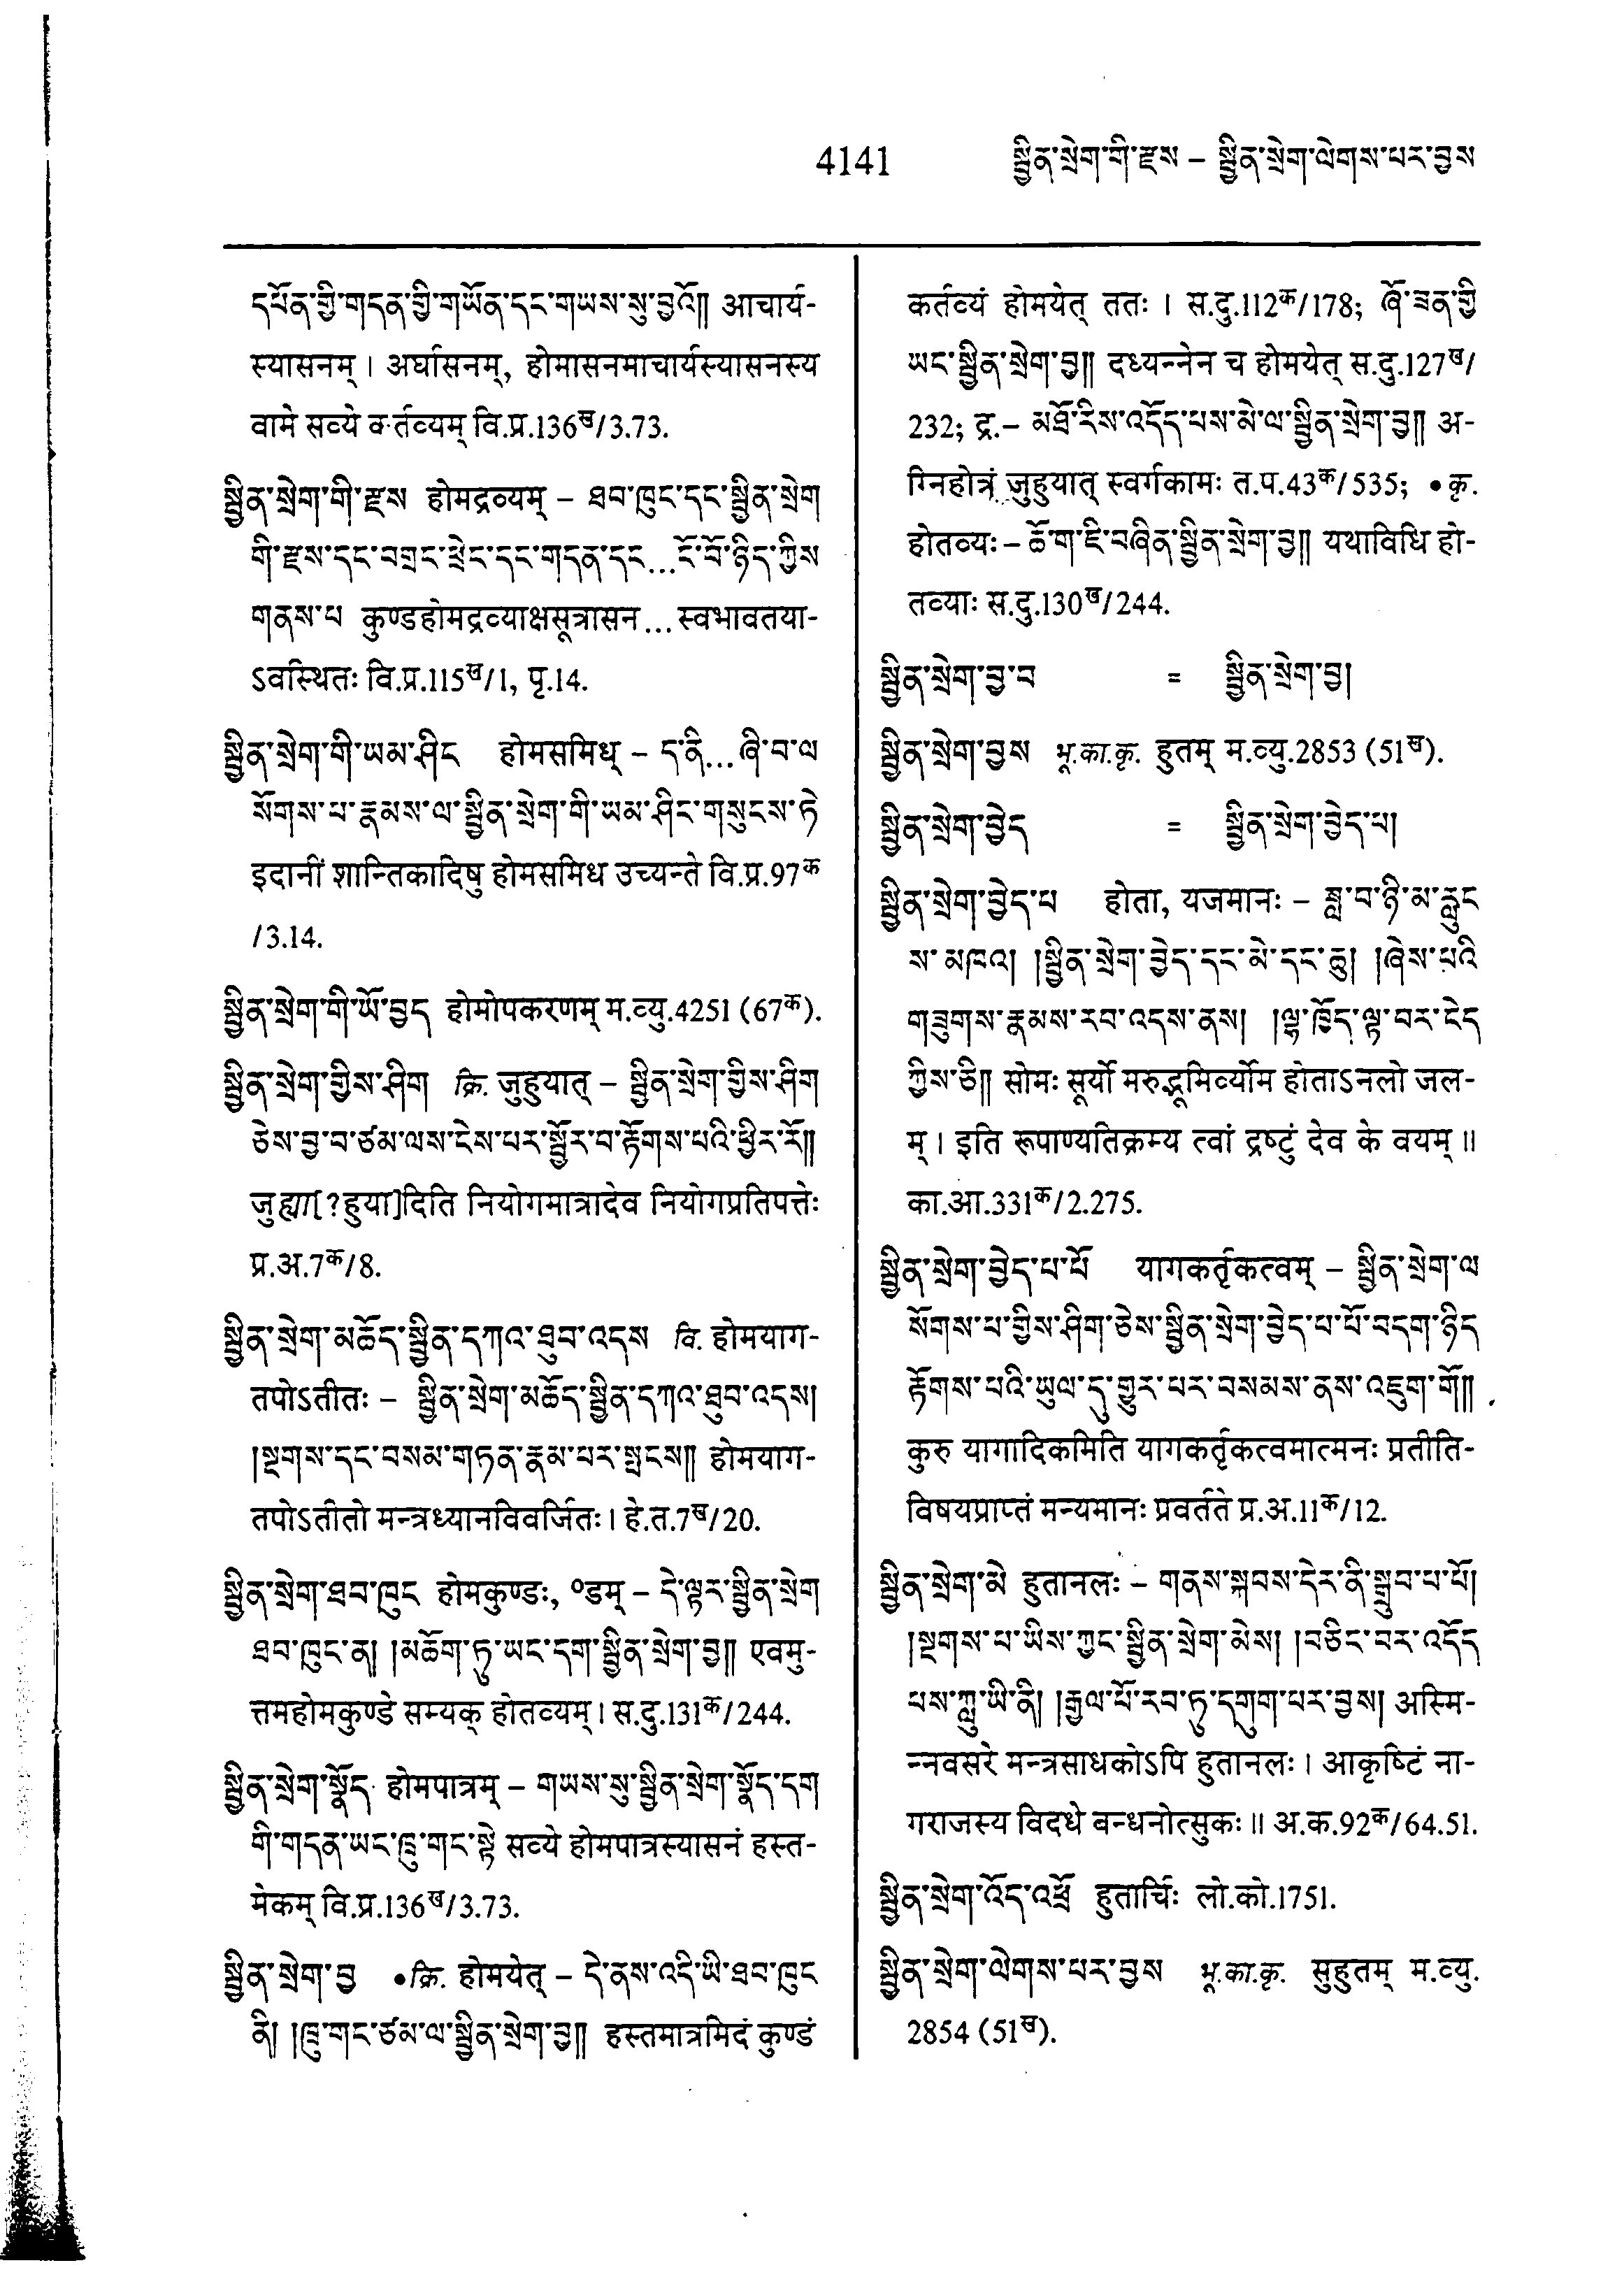 4141 སྦྱིན་སྲེག་གི་རྫས – སྦྱིན་སྲེག་ལེགས་པར་བྱས
དཔོན་གྱི་གདན་གྱི་གཡོན་དང་གཡས་སུ་བྱའོ༎ आचार्य-
स्यासनम् । अर्घासनम्, होमासनमाचार्यस्यासनस्य
वामे सव्ये कर्तव्यम् वि.प्र.136ख/3.73.
སྦྱིན་སྲེག་གི་རྫས होमद्रव्यम् – ཐབ་ཁུང་དང་སྦྱིན་སྲེག
གི་རྫས་དང་བགྲང་ཕྲེང་དང་གདན་དང...ངོ་བོ་ཉིད་ཀྱིས
གནས་པ कुण्डहोमद्रव्याक्षसूत्रासन...स्वभावतया-
ऽवस्थितः वि.प्र.115ख/1, पृ.14.
སྦྱིན་སྲེག་གི་ཡམ་ཤིང होमसमिध् – ད་ནི...ཞི་བ་ལ
སོགས་པ་རྣམས་ལ་སྦྱིན་སྲེག་གི་ཡམ་ཤིང་གསུངས་ཏེ
इदानीं शान्तिकादिषु होमसमिध उच्यन्ते वि.प्र.97क
/3.14.
སྦྱིན་སྲེག་གི་ཡོ་བྱད होमोपकरणम् म.व्यु.4251 (67क).
སྦྱིན་སྲེག་གྱིས་ཤིག क्रि. जुहुयात् – སྦྱིན་སྲེག་གྱིས་ཤིག
ཅེས་བྱ་བ་ཙམ་ལས་ངེས་པར་སྦྱོར་བ་རྟོགས་པའི་ཕྱིར་རོ༎
जुह्या[?हुया]दिति नियोगमात्रादेव नियोगप्रतिपत्तेः
प्र.अ.7क/8.
སྦྱིན་སྲེག་མཆོད་སྦྱིན་དཀའ་ཐུབ་འདས वि. होमयाग-
तपोऽतीतः – སྦྱིན་སྲེག་མཆོད་སྦྱིན་དཀའ་ཐུབ་འདས།
།སྔགས་དང་བསམ་གཏན་རྣམ་པར་སྤངས༎ होमयाग-
तपोऽतीतो मन्त्रध्यानविवर्जितः । हे.त.7ख/20.
སྦྱིན་སྲེག་ཐབ་ཁུང होमकुण्डः, ०डम् – དེ་ལྟར་སྦྱིན་སྲེག
ཐབ་ཁུང་ན། །མཆོག་ཏུ་ཡང་དག་སྦྱིན་སྲེག་བྱ༎ एवमु-
त्तमहोमकुण्डे सम्यक् होतव्यम् । स.दु.131क/244.
སྦྱིན་སྲེག་སྣོད होमपात्रम् – གཡས་སུ་སྦྱིན་སྲེག་སྣོད་དག
གི་གདན་ཡང་ཁྲུ་གང་སྟེ सव्ये होमपात्रस्यासनं हस्त-
मेकम् वि.प्र.136ख/3.73.
སྦྱིན་སྲེག་བྱ •क्रि. होमयेत् – དེ་ནས་འདི་ཡི་ཐབ་ཁུང
ནི། །ཁྲུ་གང་ཙམ་ལ་སྦྱིན་སྲེག་བྱ༎ हस्तमात्रमिदं कुण्डं
कर्तव्यं होमयेत् ततः । स.दु.112क/178; ཞོ་ཟན་གྱི
ཡང་སྦྱིན་སྲེག་བྱ༎ दध्यन्नेन च होमयेत् स.दु.127ख/
232; द्र.– མཐོ་རིས་འདོད་པས་མེ་ལ་སྦྱིན་སྲེག་བྱ༎ अ-
ग्निहोत्रं जुहुयात् स्वर्गकामः त.प.43क/535; •कृ.
होतव्यः – ཆོ་ག་ཇི་བཞིན་སྦྱིན་སྲེག་བྱ༎ यथाविधि हो-
तव्याः स.दु.130ख/244.
སྦྱིན་སྲེག་བྱ་བ = སྦྱིན་སྲེག་བྱ།
སྦྱིན་སྲེག་བྱས भू.का.कृ. हुतम् म.व्यु.2853 (51ख).
སྦྱིན་སྲེག་བྱེད = སྦྱིན་སྲེག་བྱེད་པ།
སྦྱིན་སྲེག་བྱེད་པ होता, यजमानः – ཟླ་བ་ཉི་མ་རླུང
ས་མཁའ། །སྦྱིན་སྲེག་བྱེད་དང་མེ་དང་ཆུ། །ཞེས་པའི
གཟུགས་རྣམས་རབ་འདས་ནས། །ལྷ་ཁྱོད་ལྟ་བར་ངེད
ཀྱིས་ཅི༎ सोमः सूर्यो मरुद्भूमिर्व्योम होताऽनलो जल-
म् । इति रूपाण्यतिक्रम्य त्वां द्रष्टुं देव के वयम् ॥
का.आ.331क/2.275.
སྦྱིན་སྲེག་བྱེད་པ་པོ यागकर्तृकत्वम् – སྦྱིན་སྲེག་ལ
སོགས་པ་གྱིས་ཤིག་ཅེས་སྦྱིན་སྲེག་བྱེད་པ་པོ་བདག་ཉིད
རྟོགས་པའི་ཡུལ་དུ་གྱུར་པར་བསམས་ནས་འཇུག་གོ༎
कुरु यागादिकमिति यागकर्तृकत्वमात्मनः प्रतीति-
विषयप्राप्तं मन्यमानः प्रवर्तते प्र.अ.11क/12.
སྦྱིན་སྲེག་མེ हुतानलः – གནས་སྐབས་དེར་ནི་སྒྲུབ་པ་པོ།
།སྔགས་པ་ཡིས་ཀྱང་སྦྱིན་སྲེག་མེས། །བཅིང་བར་འདོད
པས་ཀླུ་ཡི་ནི། །རྒྱལ་པོ་རབ་ཏུ་དགུག་པར་བྱས། अस्मि-
न्नवसरे मन्त्रसाधकोऽपि हुतानलः । आकृष्टिं ना-
गराजस्य विदधे बन्धनोत्सुकः ॥ अ.क.92क/64.51.
སྦྱིན་སྲེག་འོད་འཕྲོ हुतार्चिः लो.को.1751.
སྦྱིན་སྲེག་ལེགས་པར་བྱས भू.का.कृ. सुहुतम् म.व्यु.
2854 (51ख).